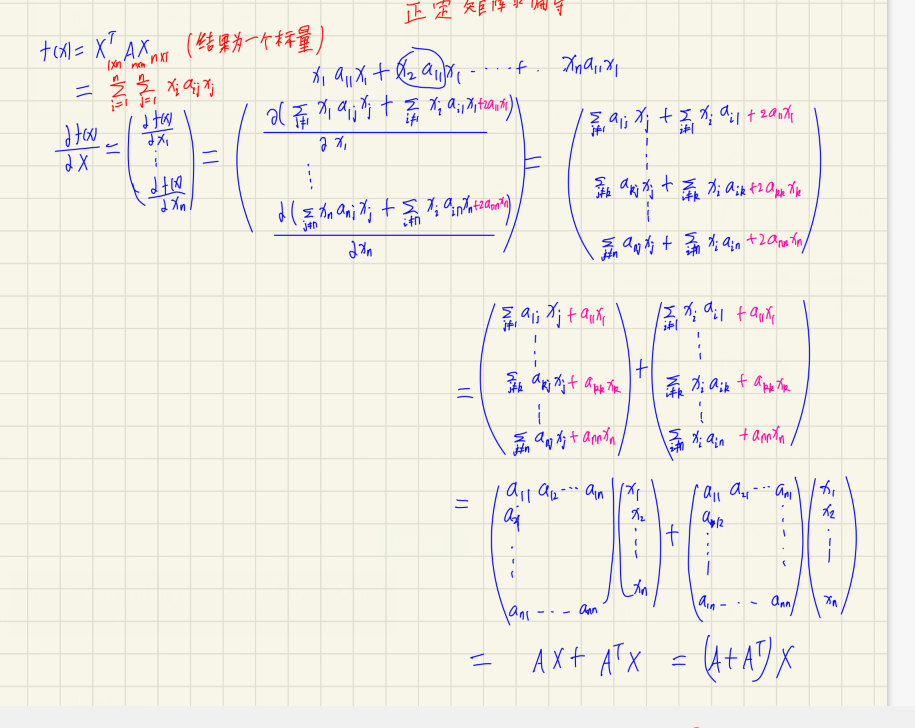 正定矩阵求偏导
f(x) = X^T A X (结果为一个标量)
1×n n×n n×1
= \sum_{i=1}^{n} \sum_{j=1}^{n} x_i a_{ij} x_j
x_1 a_{11} x_1 + x_2 a_{11} x_1 ----- + . x_n a_{11} x_1
\frac{∂f(x)}{∂X} = ( \frac{∂f(x)}{∂x_1} ⋮ \frac{∂f(x)}{∂x_n} ) = ( \frac{∂(\sum_{j≠1} x_1 a_{1j} x_j + \sum_{i≠1} x_i a_{i1} x_1 + 2a_{11}x_1)}{∂x_1} ⋮ \frac{∂(\sum_{j≠n} x_n a_{nj} x_j + \sum_{i≠n} x_i a_{in} x_n + 2a_{nn}x_n)}{∂x_n} ) = ( \sum_{j≠1} a_{1j} x_j + \sum_{i≠1} x_i a_{i1} + 2a_{11}x_1 ⋮ \sum_{j≠k} a_{kj} x_j + \sum_{i≠k} x_i a_{ik} + 2a_{kk}x_k ⋮ \sum_{j≠n} a_{nj} x_j + \sum_{i≠n} x_i a_{in} + 2a_{nn}x_n )
= ( \sum_{j≠1} a_{1j} x_j + a_{11}x_1 ⋮ \sum_{j≠k} a_{kj} x_j + a_{kk}x_k ⋮ \sum_{j≠n} a_{nj} x_j + a_{nn}x_n ) + ( \sum_{i≠1} x_i a_{i1} + a_{11}x_1 ⋮ \sum_{i≠k} x_i a_{ik} + a_{kk}x_k ⋮ \sum_{i≠n} x_i a_{in} + a_{nn}x_n )
= ( a_{11} a_{12} ⋯ a_{1n} ⋮ a_{n1} ⋯ a_{nn} ) ( x_1 x_2 ⋮ x_n ) + ( a_{11} a_{21} ⋯ a_{n1} a_{12} ⋮ a_{1n} ⋯ a_{nn} ) ( x_1 x_2 ⋮ x_n )
= AX + A^T X = (A + A^T) X